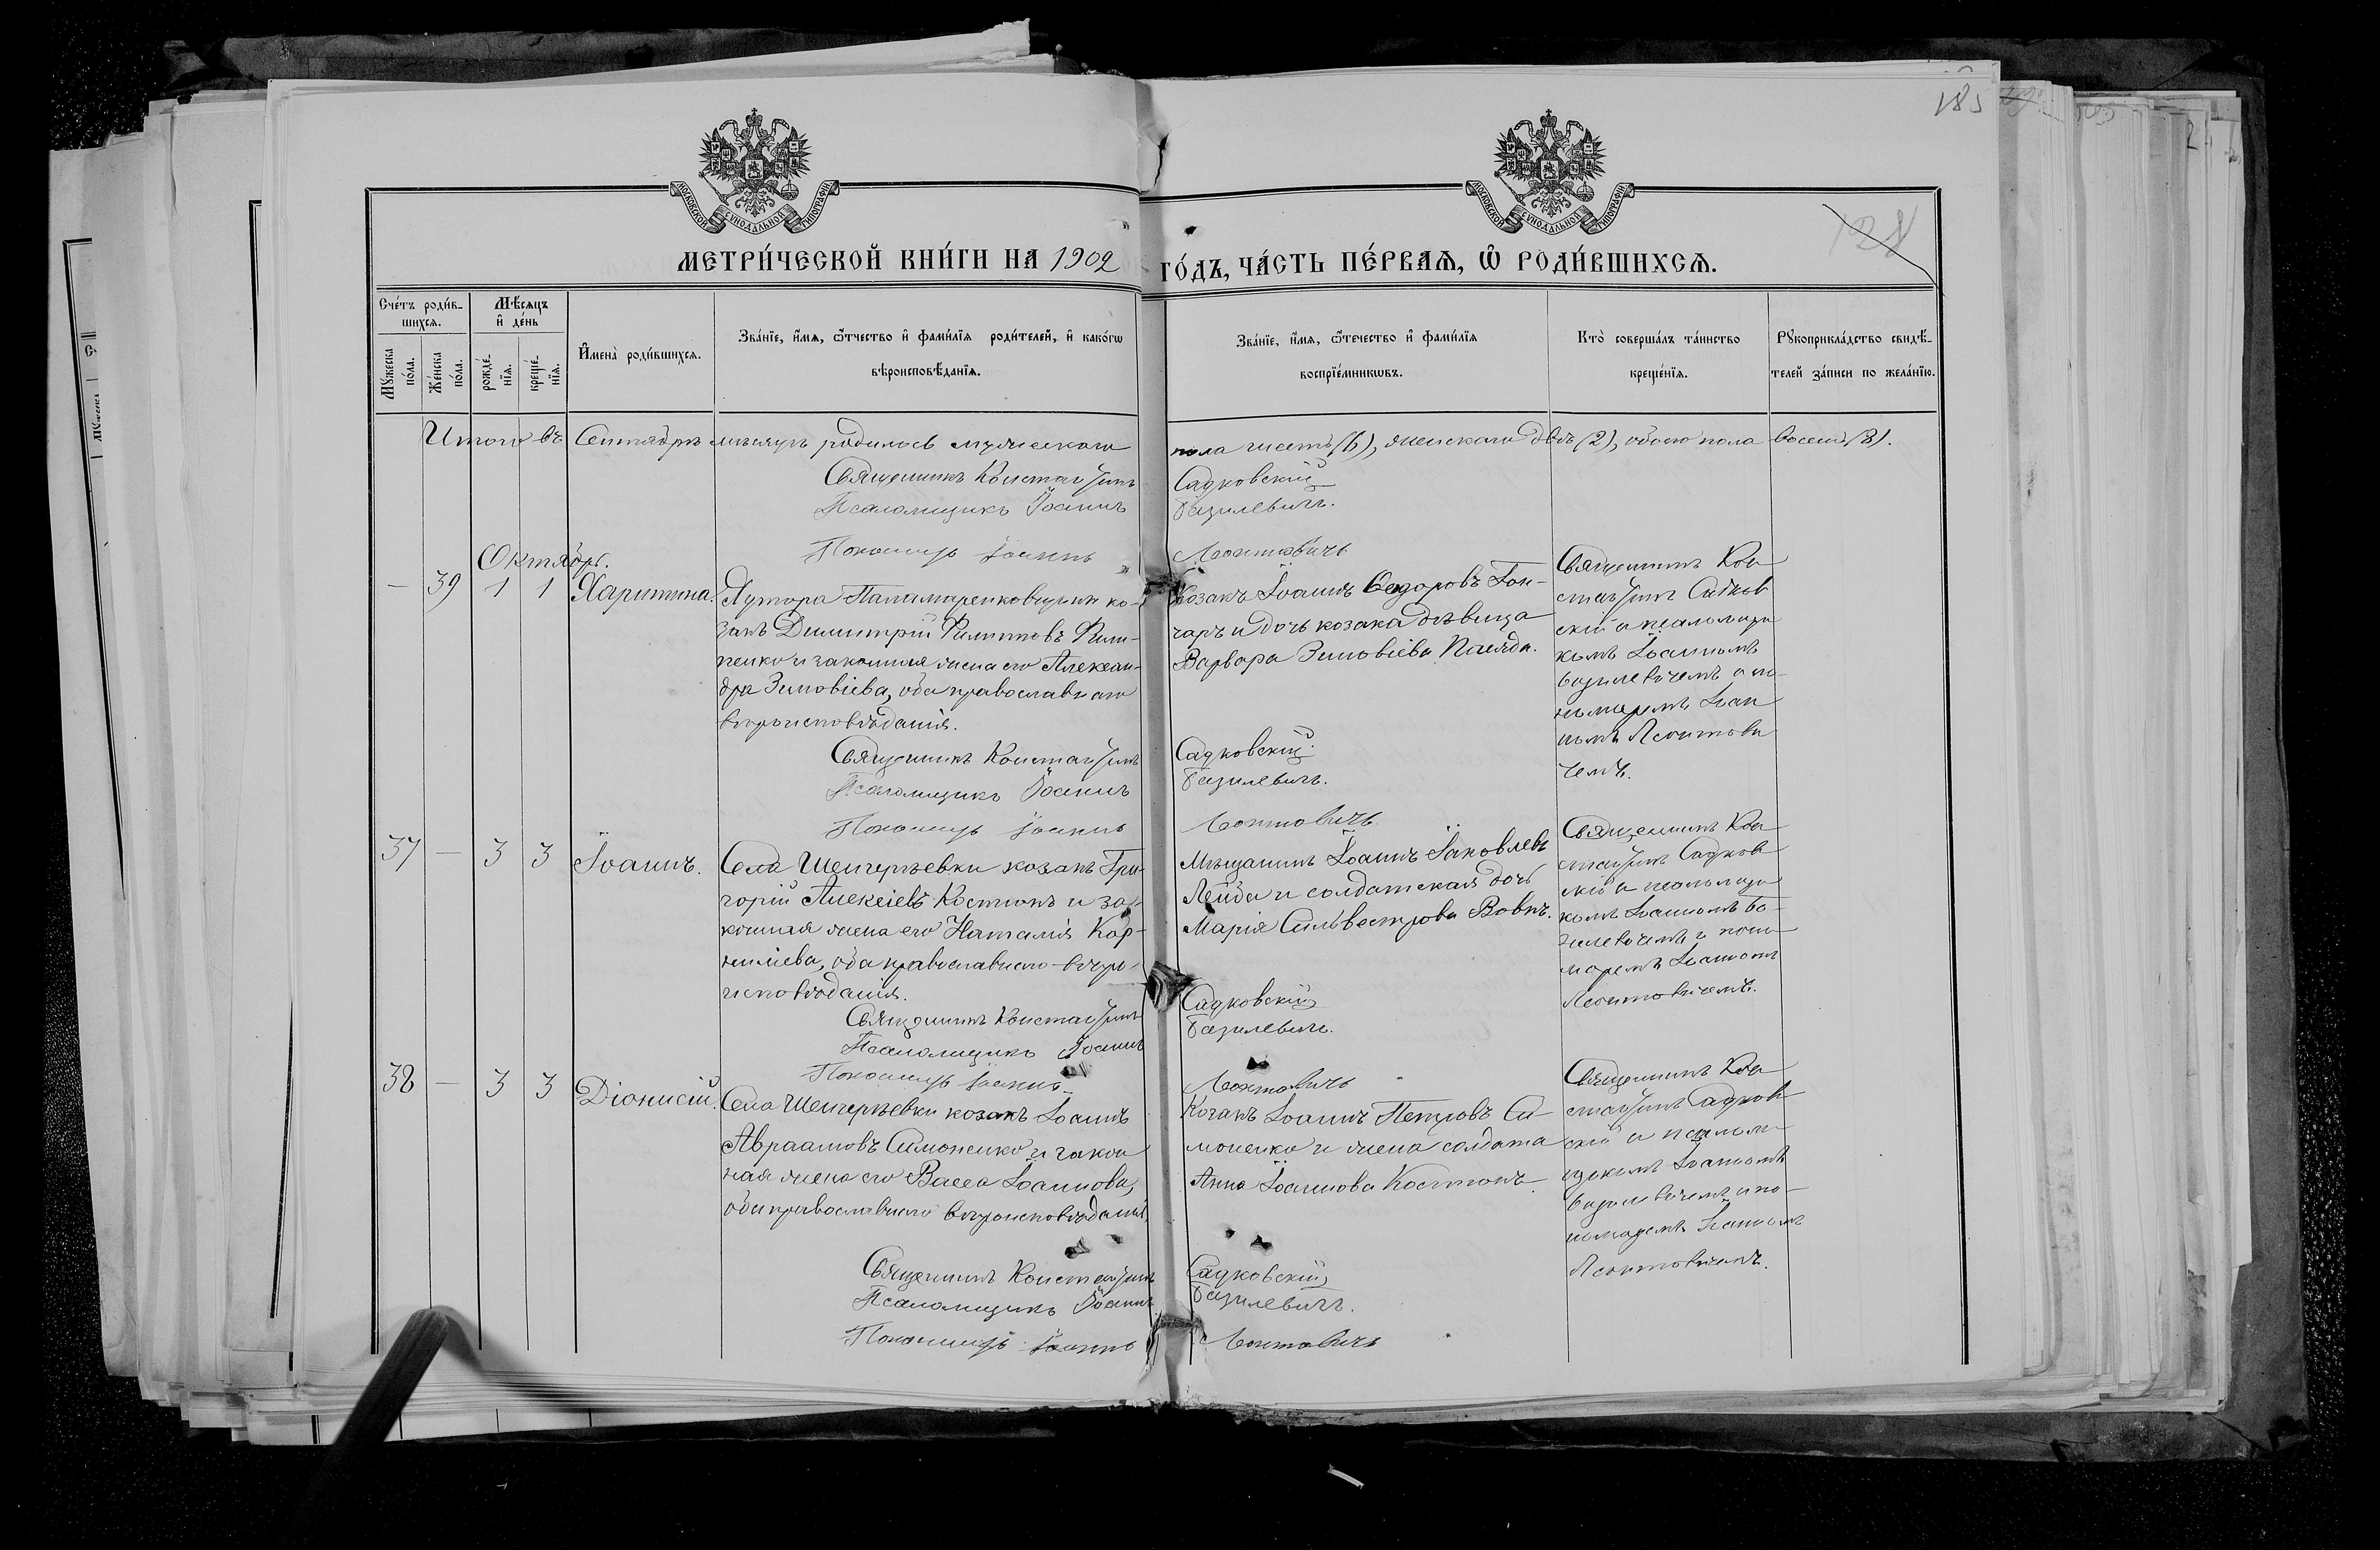 185
МОСКОВСКОЙ СѴНОДАЛЬНОЙ ТИПОГРАФІИ
МОСКОВСКОЙ СѴНОДАЛЬНОЙ ТИПОГРАФІИ
128
МЕТРИ́ЧЕСКОЙ КНИ́ГИ НА 1902 ГО́ДЪ, ЧА́СТЬ ПЕ́РВАѦ, Ѡ҆ РОДИ́ВШИХСѦ.
Сче́тъ роди́в-
шихсѧ.
Мꙋ́жеска
по́ла.
Же́нска
по́ла.
Мѣ́сѧцъ
и҆ де́нь
рожде́-
нїѧ.
креще́-
нїѧ.
И҆мена̀ роди́вшихсѧ.
Зва́нїе, и҆́мѧ, ѻ҆́тчество и҆ фами́лїѧ роди́телей, и҆ како́гѡ
вѣроисповѣ́данїѧ.
Зва́нїе, и҆́мѧ, ѻ҆́течество и҆ фами́лїѧ
воспрїе́мникѡвъ.
Кто̀ соверша́лъ та́инство
креще́нїѧ.
Рꙋкоприкла́дство свидѣ́-
телей за́писи по жела́нїю.
Итого въ Сентябрѣ мѣсяцѣ родилось мужескаго пола шесть (6), женскаго двѣ (2), обоего пола восемь (8).
Священникъ Константинъ Садковскій
Псаломщикъ Іоаннъ Базилевичъ.
Пономарь Іоаннъ Леонтовичъ
Октябрь.
— 39 1 1 Харитина.
Хутора Панамаренковщины ко-
закъ Димитрій Филиповъ Фили-
пенко и законная жена его Алексан-
дра Зиновіева, оба православнаго
вѣроисповѣданія.
Козакъ Іоаннъ Ѳедоровъ Гон-
чаръ и дочь козака дѣвица
Варвара Зиновіева
Священникъ Кон
стантинъ Садков
скій и псаломщи
комъ Іоанномъ
Базилевичемъ и по-
номаремъ Іоан
номъ Леонтови
чемъ.
Священникъ Константинъ Садковскій
Псаломщикъ Іоаннъ Базилевичъ.
Пономарь Іоаннъ Леонтовичъ
37 — 3 3 Іоаннъ.
Села Шенгерѣевки козакъ Гри-
горій Алексіевъ Костюкъ и за-
конная жена его Наталія Кор-
ниліева, оба православнаго вѣро-
исповѣданія.
Мѣщанинъ Іоаннъ Іаковлевъ
Лейба и солдатская дочь
Марія Сильвестрова Вовкъ.
Священникъ Кон
стантинъ Садков
скій и псаломщи
комъ Іоанномъ Ба-
зилевичемъ и поно-
маремъ Іоанномъ
Леонтовичемъ.
Священникъ Константинъ Садковскій
Псаломщикъ Іоаннъ Базилевичъ.
Пономарь Іоаннъ Леонтовичъ
38 — 3 3 Діонисій.
Села Шенгерѣевки козакъ Іоаннъ
Авраамовъ Симоненко и закон
ная жена его Васса Іоаннова,
оба православнаго вѣроисповѣданія.
Козакъ Іоаннъ Петровъ Си-
моненко и жена солдата
Анна Іоаннова Костюкъ.
Священникъ Кон
стантинъ Садков
скій и псалом-
щикомъ Іоанномъ
Базилевичемъ и по-
номаремъ Іоанномъ
Леонтовичемъ.
Священникъ Константинъ Садковскій
Псаломщикъ Іоаннъ Базилевичъ.
Пономарь Іоаннъ Леонтовичъ